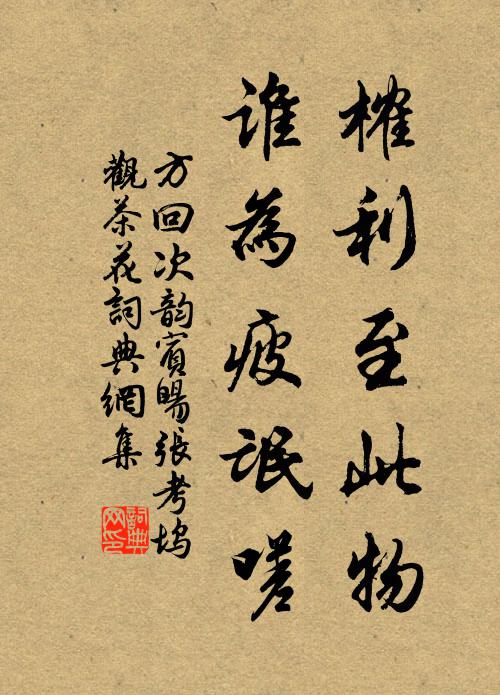 榷利至此物
誰為疲氓嗟
方回次韵賓暘張考塢
觀茶花詞典網集
詞典網印